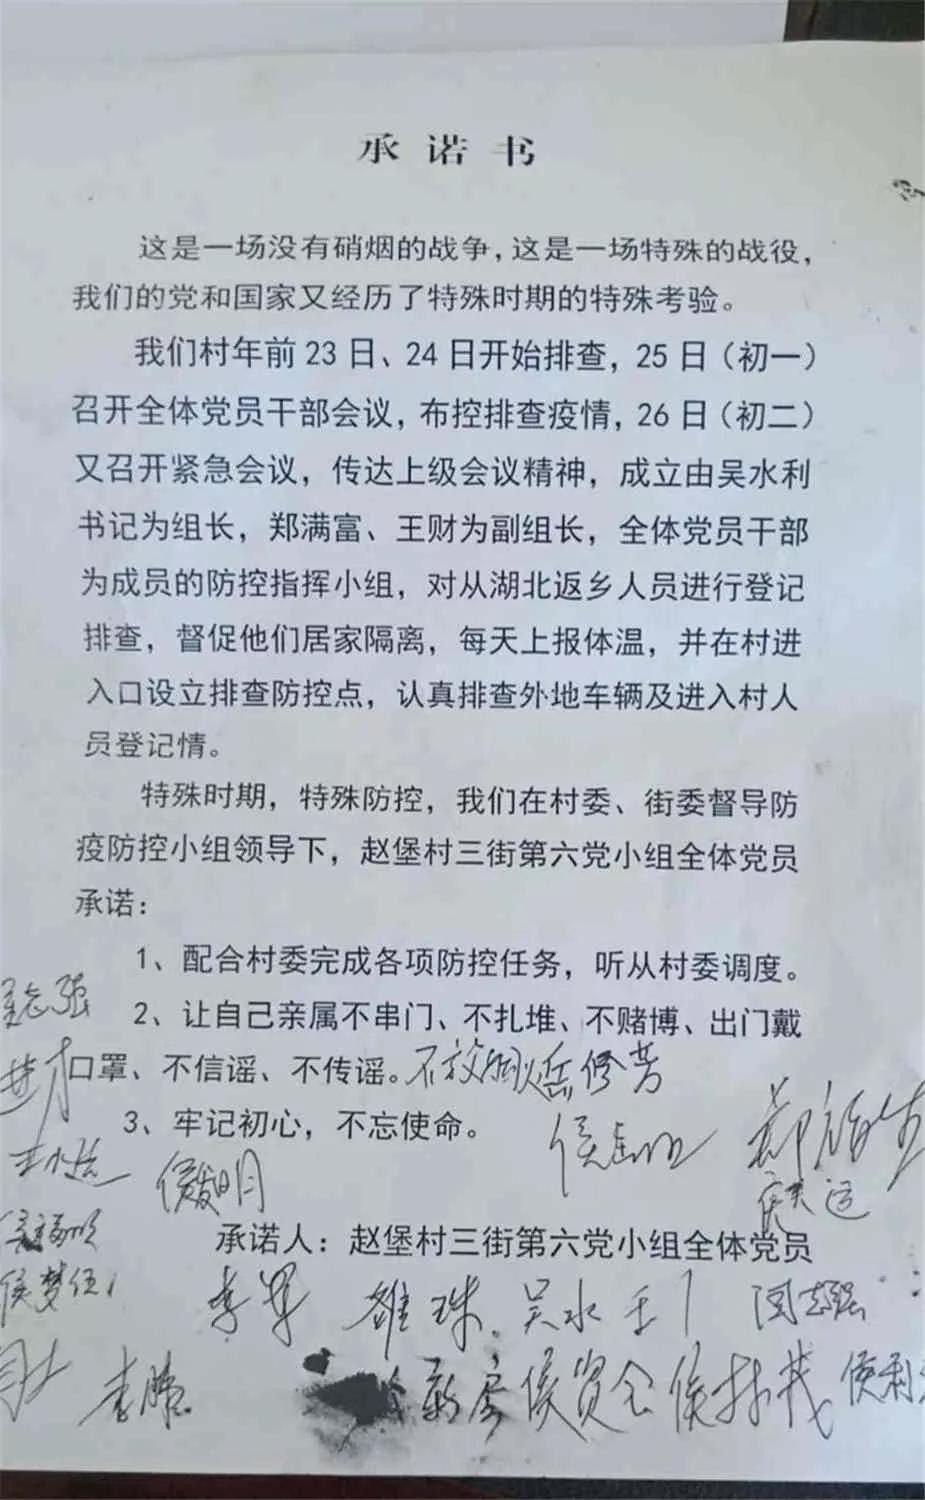 承诺书
这是一场没有硝烟的战争，这是一场特殊的战役，
我们的党和国家又经历了特殊时期的特殊考验。
我们村年前23日、24日开始排查，25日（初一）
召开全体党员干部会议，布控排查疫情，26日（初二）
又召开紧急会议，传达上级会议精神，成立由吴水利
书记为组长，郑满富、王财为副组长，全体党员干部
为成员的防控指挥小组，对从湖北返乡人员进行登记
排查，督促他们居家隔离，每天上报体温，并在村进
入口设立排查防控点，认真排查外地车辆及进入村人
员登记情。
特殊时期，特殊防控，我们在村委、街委督导防
疫防控小组领导下，赵堡村三街第六党小组全体党员
承诺：
1、配合村委完成各项防控任务，听从村委调度。
2、让自己亲属不串门、不扎堆、不赌博、出门戴
口罩、不信谣、不传谣。不放 修芳
3、牢记初心，不忘使命。
侯发明
承诺人：赵堡村三街第六党小组全体党员
侯梦伍
李军 雄珠 吴水 闫志强
李鹏 侯资 侯利